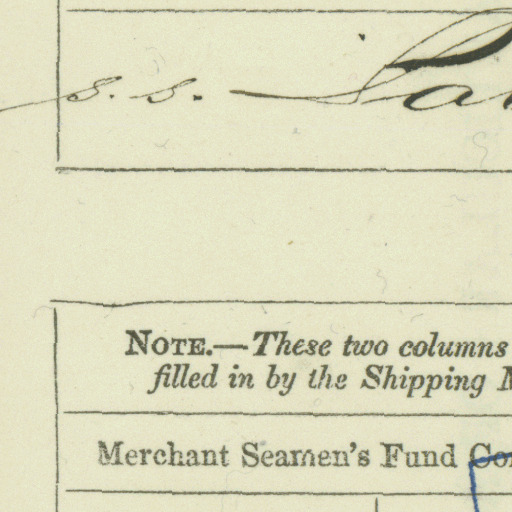 s. s.
NOTE.—These two columns
filled in by the Shipping
Merchant Seamen's Fund